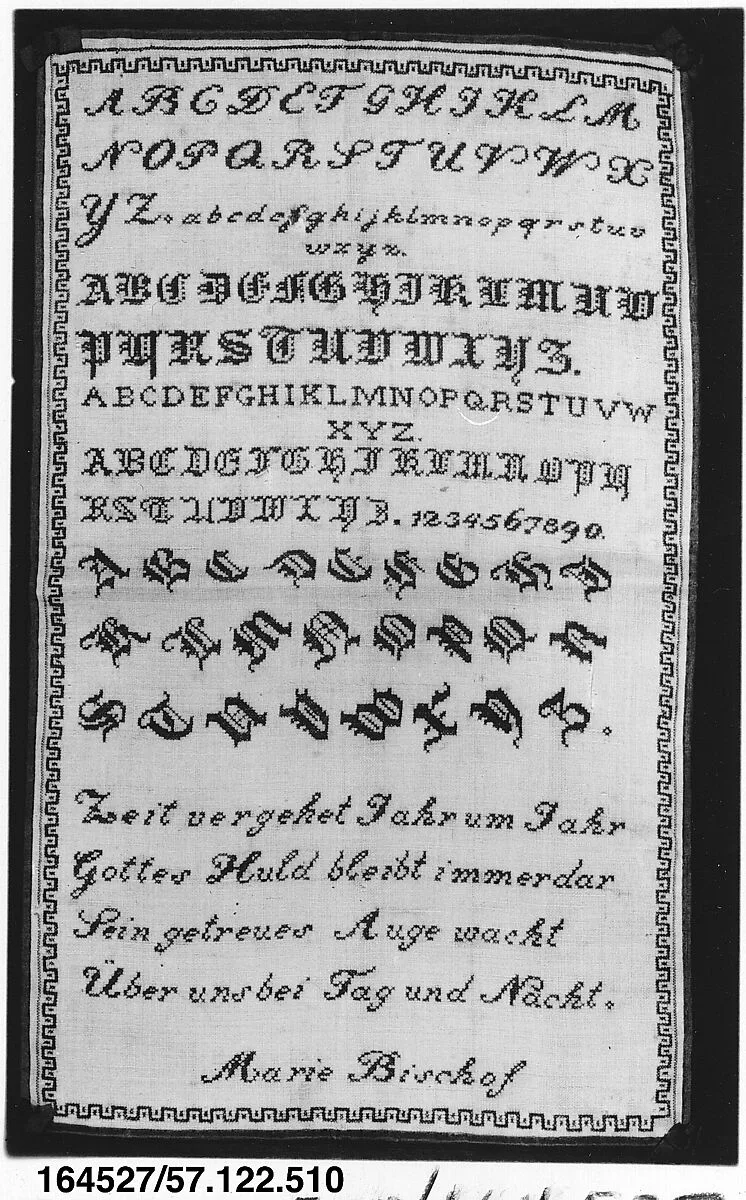 A B C D E F G H I K L M
N O P Q R S T U V W X
Y Z. a b c d e f g h i j k l m n o p q r s t u v
w x y z.
A B C D E F G H I K L M N O
P Q R S T U V W X Y Z.
A B C D E F G H I K L M N O P Q R S T U V W
X Y Z.
A B C D E F G H I K L M N O P Q
R S T U V W X Y Z. 1234567890.
A B C D E F G H I
K L M N O P Q R
S T U V W X Y Z.
Zeit vergehet Jahr um Jahr
Gottes Huld bleibt immerdar
Sein getreues Auge wacht
Über uns bei Tag und Nacht.
Marie Bischof
164527/57.122.510